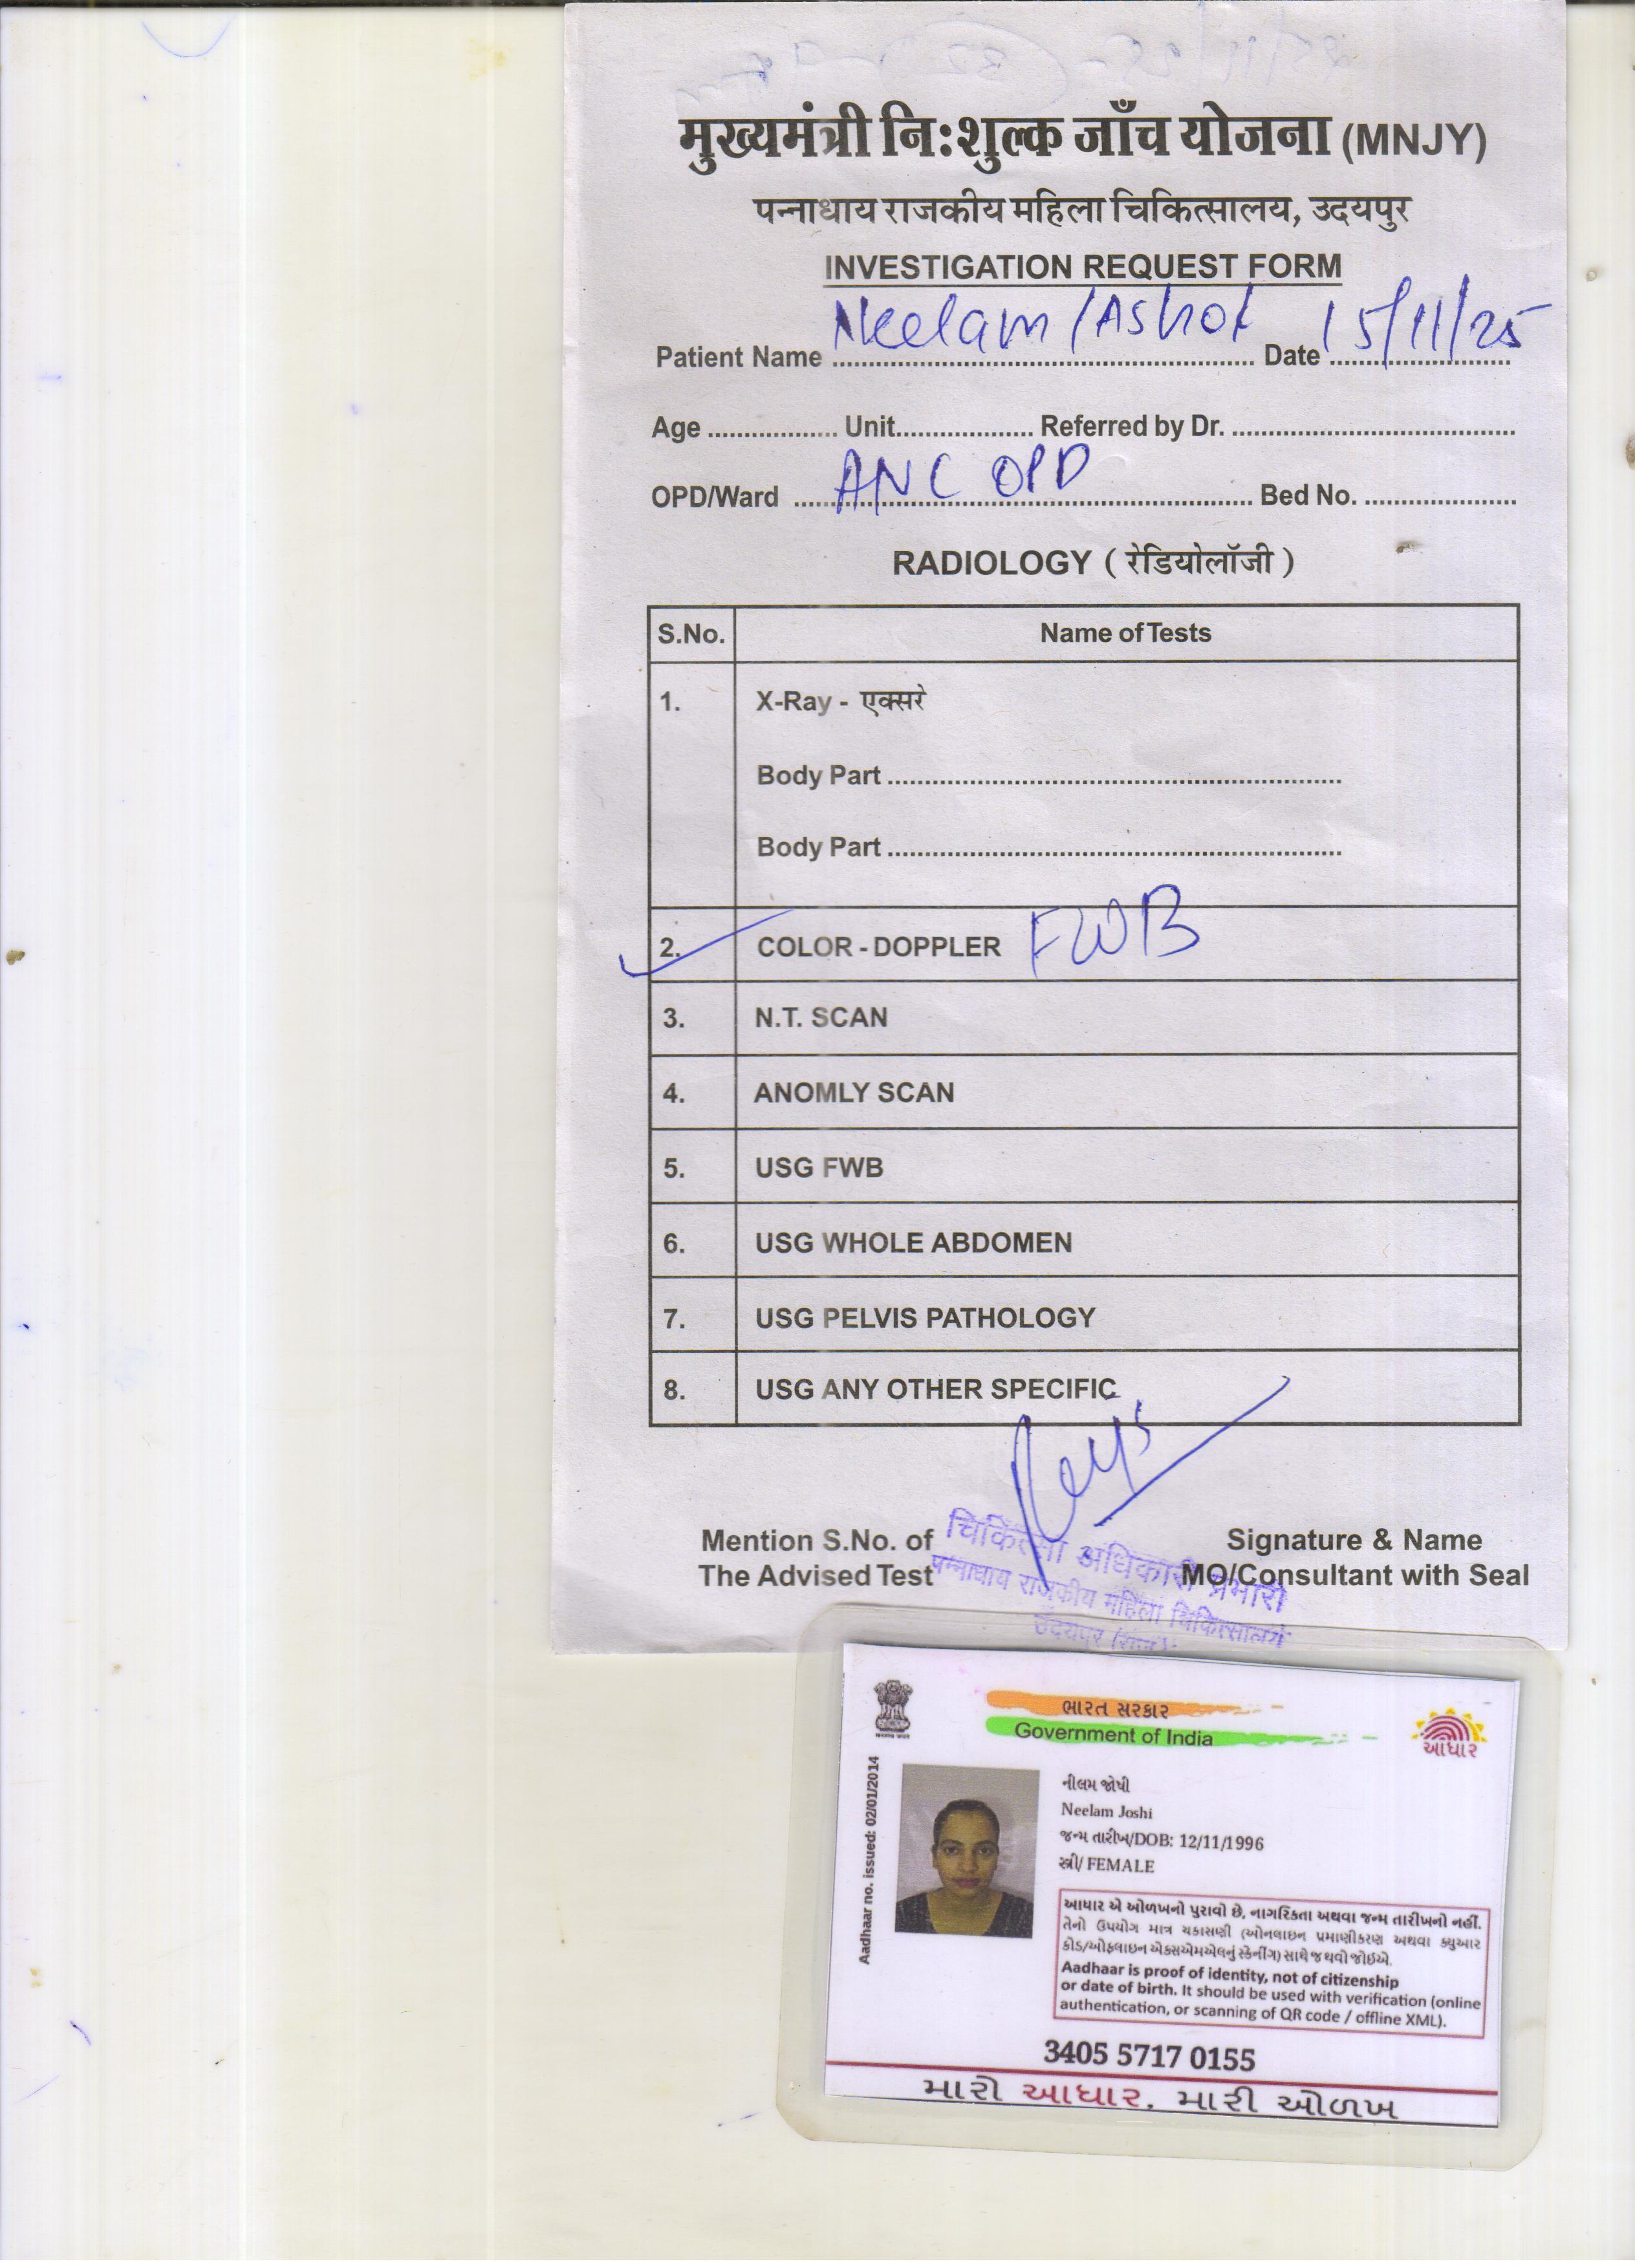 मुख्यमंत्री निःशुल्क जाँच योजना (MNJY)
पन्नाधाय राजकीय महिला चिकित्सालय, उदयपुर
INVESTIGATION REQUEST FORM
Patient Name Neelam / Ashok Date 15/11/25
Age .................. Unit................... Referred by Dr. ......................................
OPD/Ward ANC OPD Bed No. ....................
RADIOLOGY ( रेडियोलॉजी )
S.No. Name of Tests
1. X-Ray - एक्सरे
Body Part ............................................................
Body Part ............................................................
2. COLOR - DOPPLER FWB
3. N.T. SCAN
4. ANOMLY SCAN
5. USG FWB
6. USG WHOLE ABDOMEN
7. USG PELVIS PATHOLOGY
8. USG ANY OTHER SPECIFIC
Mention S.No. of Signature & Name
The Advised Test MO/Consultant with Seal
चिकित्सा अधिकारी प्रभारी
पन्नाधाय राजकीय महिला चिकित्सालय
उदयपुर (राज.)
ભારત સરકાર
Government of India
આધાર
Aadhaar no. issued: 02/01/2014
નીલમ જોષી
Neelam Joshi
જન્મ તારીખ/DOB: 12/11/1996
સ્ત્રી/ FEMALE
આધાર એ ઓળખનો પુરાવો છે, નાગરિકતા અથવા જન્મ તારીખનો નહીં.
તેનો ઉપયોગ માત્ર ચકાસણી (ઓનલાઇન પ્રમાણીકરણ અથવા ક્યુઆર
કોડ/ઓફલાઇન એક્સએમએલનું સ્કેનીંગ) સાથે જ થવો જોઈએ.
Aadhaar is proof of identity, not of citizenship
or date of birth. It should be used with verification (online
authentication, or scanning of QR code / offline XML).
3405 5717 0155
મારો આધાર, મારી ઓળખ